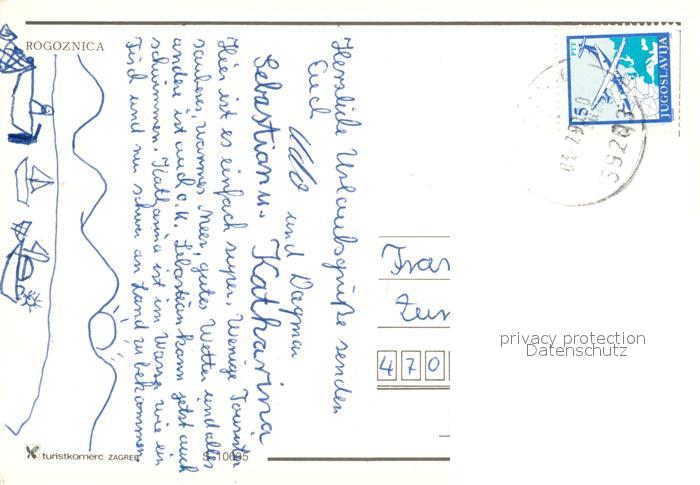 ROGOZNICA
Herzliche Urlaubsgrüße senden
Euch
Udo und Dagmar
Sebastian u. Katharina
Hier ist es einfach super. Wenige Touristen
sauberes, warmes Meer, gutes Wetter und alles
andere ist auch o.k. Sebastian kann jetzt auch
schwimmen. Katharina ist im Wasser wie ein
Fisch und nur schwer an Land zu bekommen.
turistkomerc ZAGREB
JUGOSLAVIJA
PTT
59203
Fra
Zum
470
privacy protection
Datenschutz